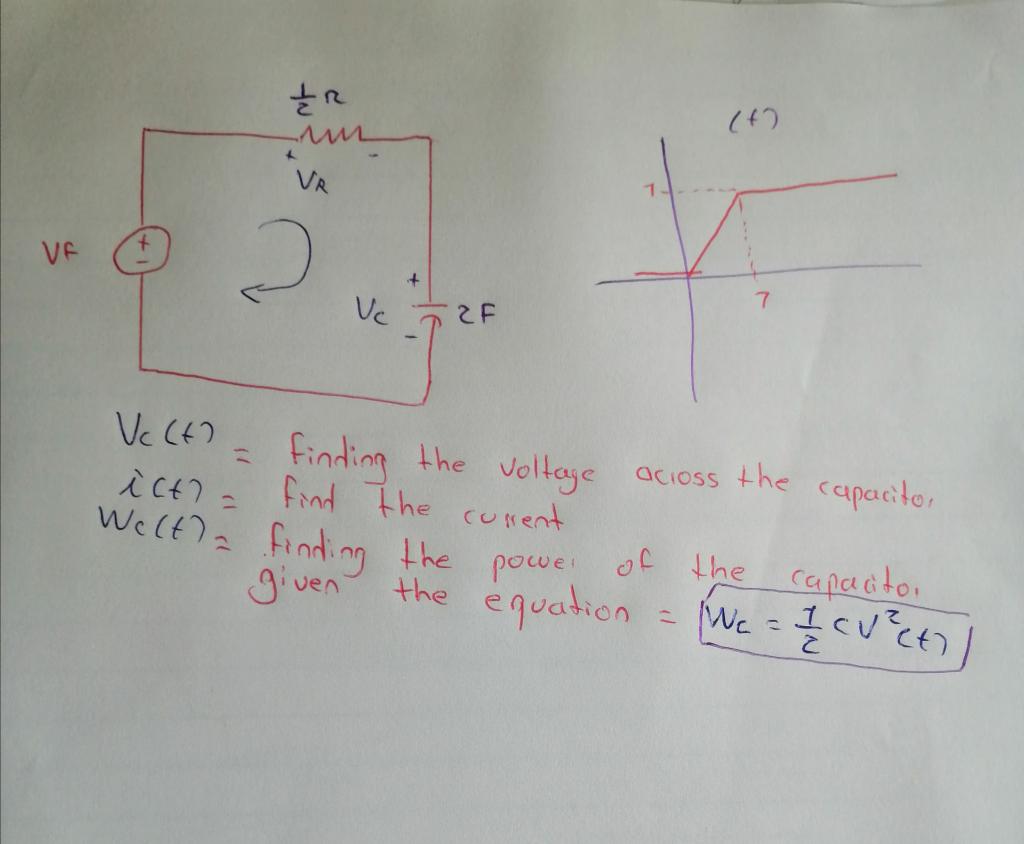 ½ Ω
(t)
+ -
VR
1
VF
+
-
+
Vc 2F
-
1
Vc(t) = finding the voltage across the capacitor
i(t) = find the current
Wc(t) = finding the power of the capacitor
given the equation = Wc = ½ CV²(t)